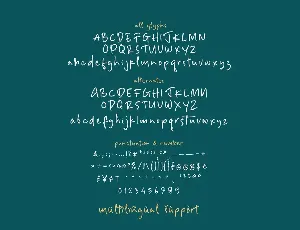 all glyphs
ABCDEFGHIJKLMN
OPQRSTUVWXYZ
abcdefghijklmnopqrstuvwxyz
alternates
ABCDEFGHIJKLMN
OPQRSTUVWXYZ
abcdefghijklmnopqrstuvwxyz
punctuation & number
0123456789
multilingual support